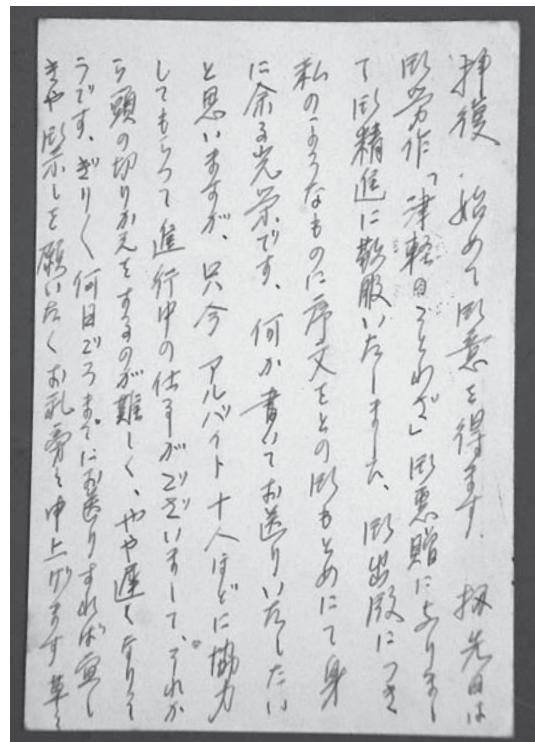 拝復 始めて御意を得ます。扨先日は
御労作「津軽のことわざ」御恵贈に与りまし
て御精進に敬服いたしました、御出版につき
私のようなものに序文をとの御もとめにて身
に余る光栄です、何か書いてお送りいたしたい
と思いますが、只今アルバイト十人ほどに協力
してもらって進行中の仕事がございまして、それか
ら頭の切りかえをするのが難しく、やや遅くなりそ
うです、ぎりぎり何日ごろまでにお送りすれば宜し
きや御示しを願いたくお礼旁々申上げます 草々